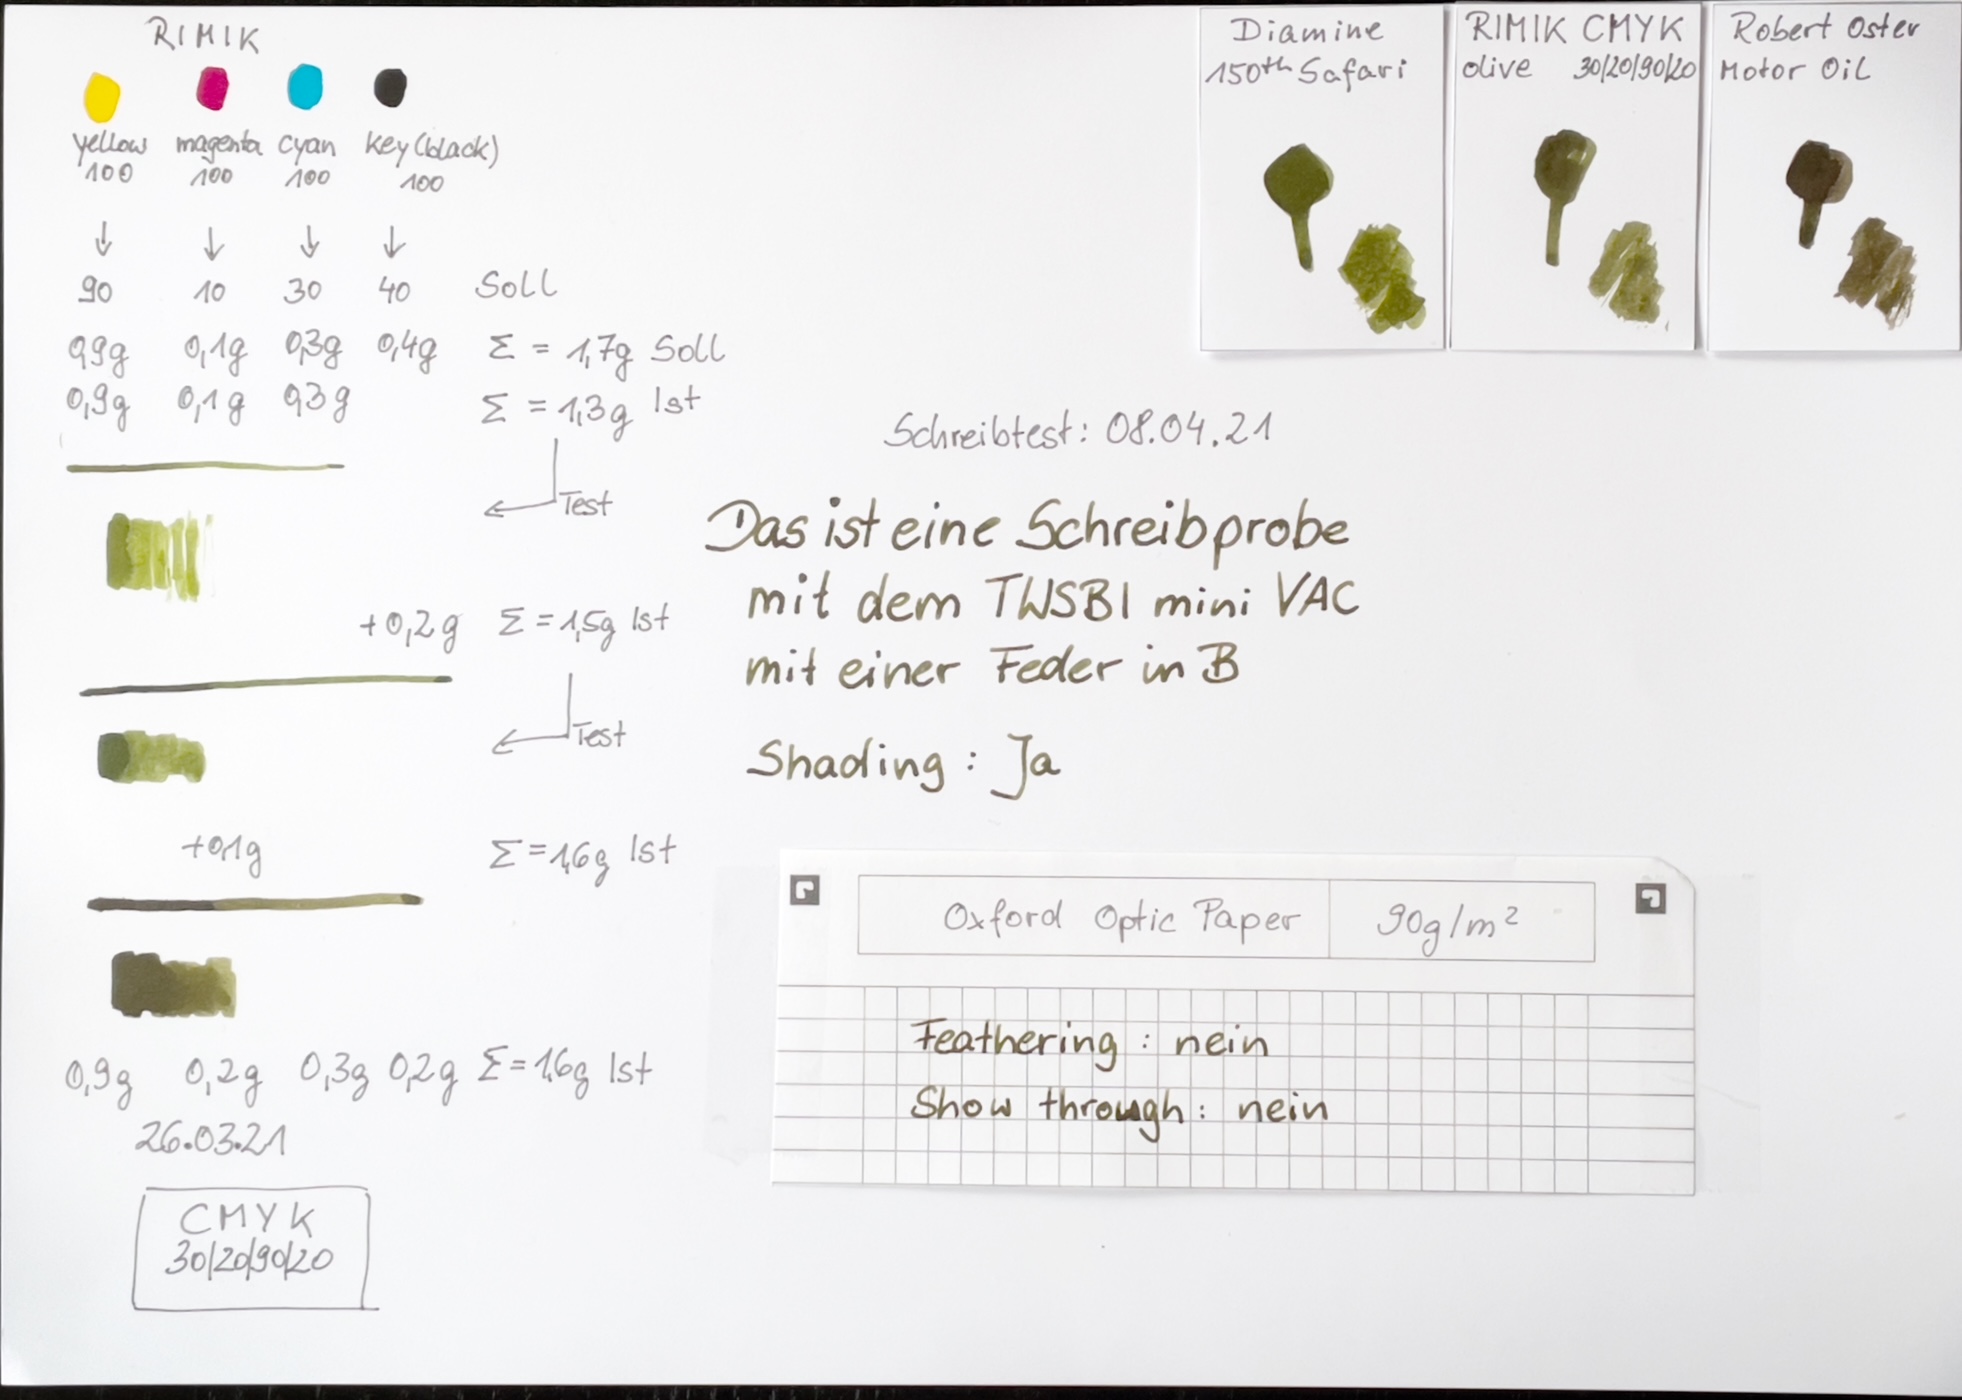 RIMIK
yellow magenta cyan key (black)
100 100 100 100
90 10 30 40 Soll
0,9g 0,1g 0,3g 0,4g Σ = 1,7g Soll
0,9g 0,1g 0,3g Σ = 1,3g Ist
Test
+0,2g Σ = 1,5g Ist
Test
+0,1g Σ = 1,6g Ist
0,9g 0,2g 0,3g 0,2g Σ = 1,6g Ist
26.03.21
CMYK
30/20/90/20
Diamine
150th Safari
RIMIK CMYK
olive 30/20/90/20
Robert Oster
Motor Oil
Schreibtest: 08.04.21
Das ist eine Schreibprobe
mit dem TWSBI mini VAC
mit einer Feder in B
Shading : Ja
Oxford Optic Paper 90g/m²
Feathering : nein
Show through : nein